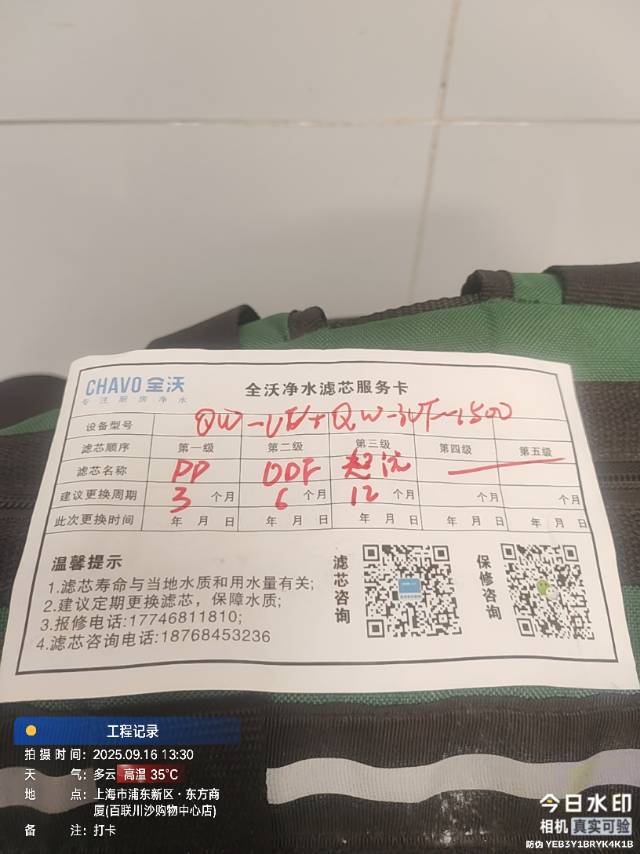 CHAVO 全沃
专注厨房净水
全沃净水滤芯服务卡
设备型号 QW-UF+QW-3UF-1500
滤芯顺序 第一级 第二级 第三级 第四级 第五级
滤芯名称 PP UDF 超沈
建议更换周期 3 个月 6 个月 12 个月 个月 个月
此次更换时间 年 月 日 年 月 日 年 月 日 年 月 日 年 月 日
温馨提示
1.滤芯寿命与当地水质和用水量有关;
2.建议定期更换滤芯，保障水质;
3.报修电话:17746811810;
4.滤芯咨询电话:18768453236
滤芯咨询
保修咨询
工程记录
拍摄时间: 2025.09.16 13:30
天 气: 多云 高温 35℃
地 点: 上海市浦东新区·东方商
厦(百联川沙购物中心店)
备 注: 打卡
今日水印
相机 真实可验
防伪 YEB3Y1BRYK4K1B